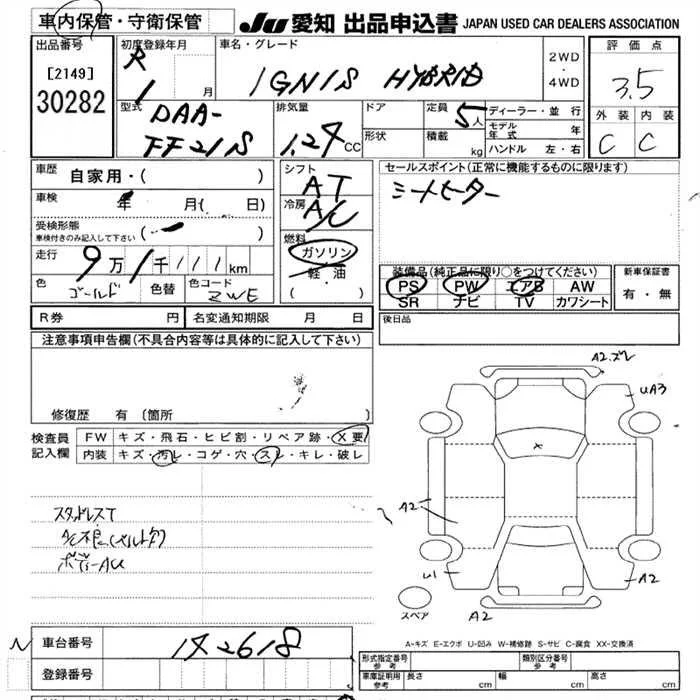 車内保管・守衛保管
JU 愛知 出品申込書 JAPAN USED CAR DEALERS ASSOCIATION
出品番号
[2149]
30282
初度登録年月
R
1 月
車名・グレード
IGNIS HYBRID
2WD
・
4WD
評価点
3.5
外装 内装
C C
型式
DAA-
FF21S
排気量
1.24 CC
ドア
形状
定員
5人
積載
kg
ディーラー・並行
モデル年式 年
ハンドル 左・右
車歴
自家用・( )
車検
年 月( 日)
受検形態
車検付きのみ記入して下さい
( )
走行
9万1千111km
色
ゴールド
色替
色コード
ZWE
シフト
AT
冷房
A/C
燃料
ガソリン
軽・油
・( )
セールスポイント(正常に機能するものに限ります)
シートヒーター
装備品(純正品に限り○をつけてください)
PS PW エアB AW
SR ナビ TV カワシート
新車保証書
有・無
R券 円
名変通知期限 月 日
後日品
注意事項申告欄(不具合内容等は具体的に記入して下さい)
修復歴 有 〔箇所 〕
検査員
記入欄
FW キズ・飛石・ヒビ割・リペア跡・X要
内装 キズ・汚レ・コゲ・穴・スレ・キレ・破レ
スタッドレスT
ボデーAU
A2.ズレ
UA3
X
A2
U1
A2
A2
スペア
A-キズ E-エクボ U-凹み W-補修跡 S-サビ C-腐食 XX-交換済
N
車台番号
172618
登録番号
形式指定番号
参考
類別区分番号
参考
車庫証明用
参考
長さ cm
幅 cm
高さ cm